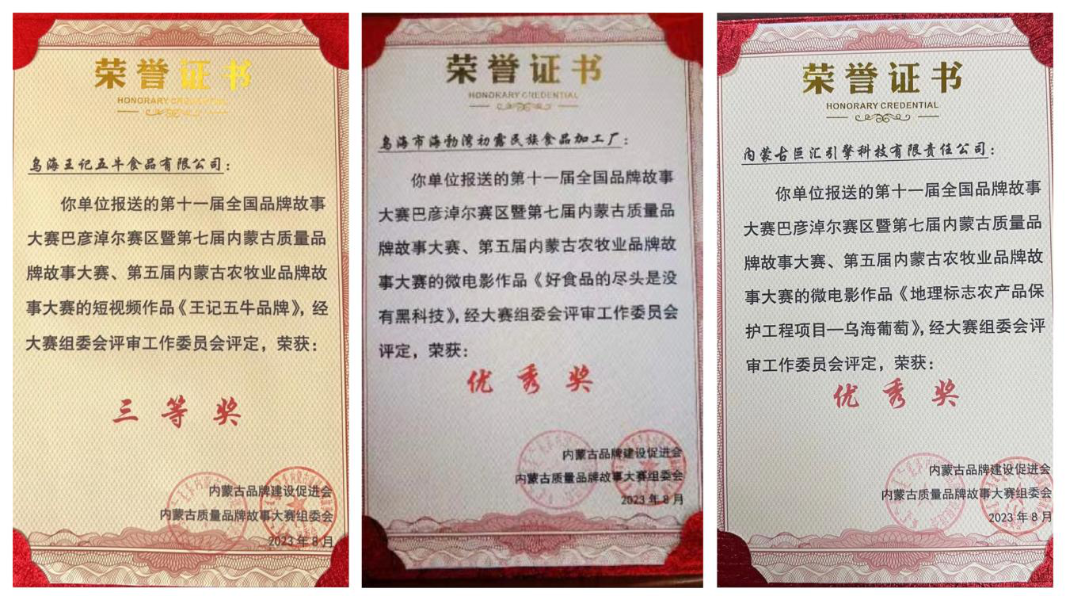 荣誉证书
HONORARY CREDENTIAL
乌海王记五牛食品有限公司：
你单位报送的第十一届全国品牌故事
大赛巴彦淖尔赛区暨第七届内蒙古质量品
牌故事大赛、第五届内蒙古农牧业品牌故
事大赛的短视频作品《王记五牛品牌》，经
大赛组委会评审工作委员会评定，荣获：
三等奖
内蒙古品牌建设促进会
内蒙古质量品牌故事大赛组委会
2023年8月
荣誉证书
HONORARY CREDENTIAL
乌海市海勃湾初露民族食品加工厂：
你单位报送的第十一届全国品牌故事
大赛巴彦淖尔赛区暨第七届内蒙古质量品
牌故事大赛、第五届内蒙古农牧业品牌故
事大赛的微电影作品《好食品的尽头是没
有黑科技》，经大赛组委会评审工作委员会
评定，荣获：
优秀奖
内蒙古品牌建设促进会
内蒙古质量品牌故事大赛组委会
2023年8月
荣誉证书
HONORARY CREDENTIAL
内蒙古巨汇引擎科技有限责任公司：
你单位报送的第十一届全国品牌故事
大赛巴彦淖尔赛区暨第七届内蒙古质量品
牌故事大赛、第五届内蒙古农牧业品牌故
事大赛的微电影作品《地理标志农产品保
护工程项目—乌海葡萄》，经大赛组委会评
审工作委员会评定，荣获：
优秀奖
内蒙古品牌建设促进会
内蒙古质量品牌故事大赛组委会
2023年8月